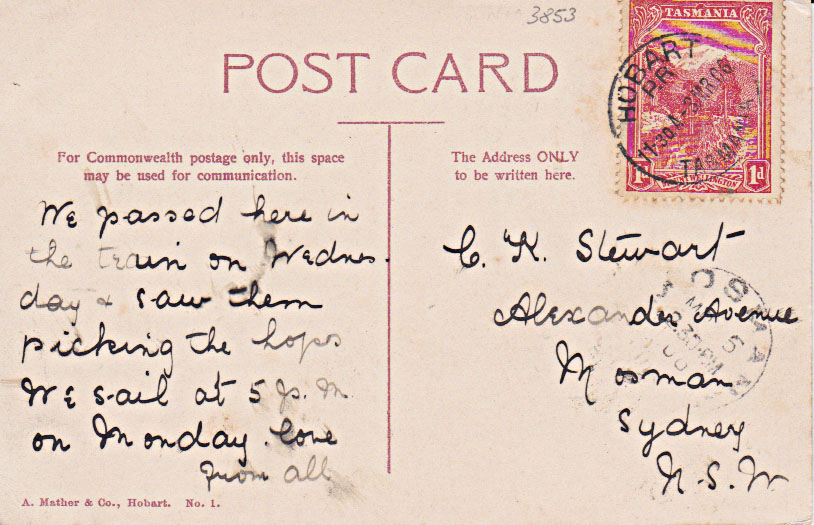 3853
TASMANIA
HOBART
11·30 A - 2 MR 06
TASMANIA
1d 1d
POST CARD
For Commonwealth postage only, this space
may be used for communication.
The Address ONLY
to be written here.
We passed here in
the train on Wednes.
day & saw them
picking the hops
We sail at 5 p.m.
on Monday. love
from all
C. K. Stewart
Alexander Avenue
Mosman
Sydney
N.S.W
MOSMAN
A. Mather & Co., Hobart. No. 1.